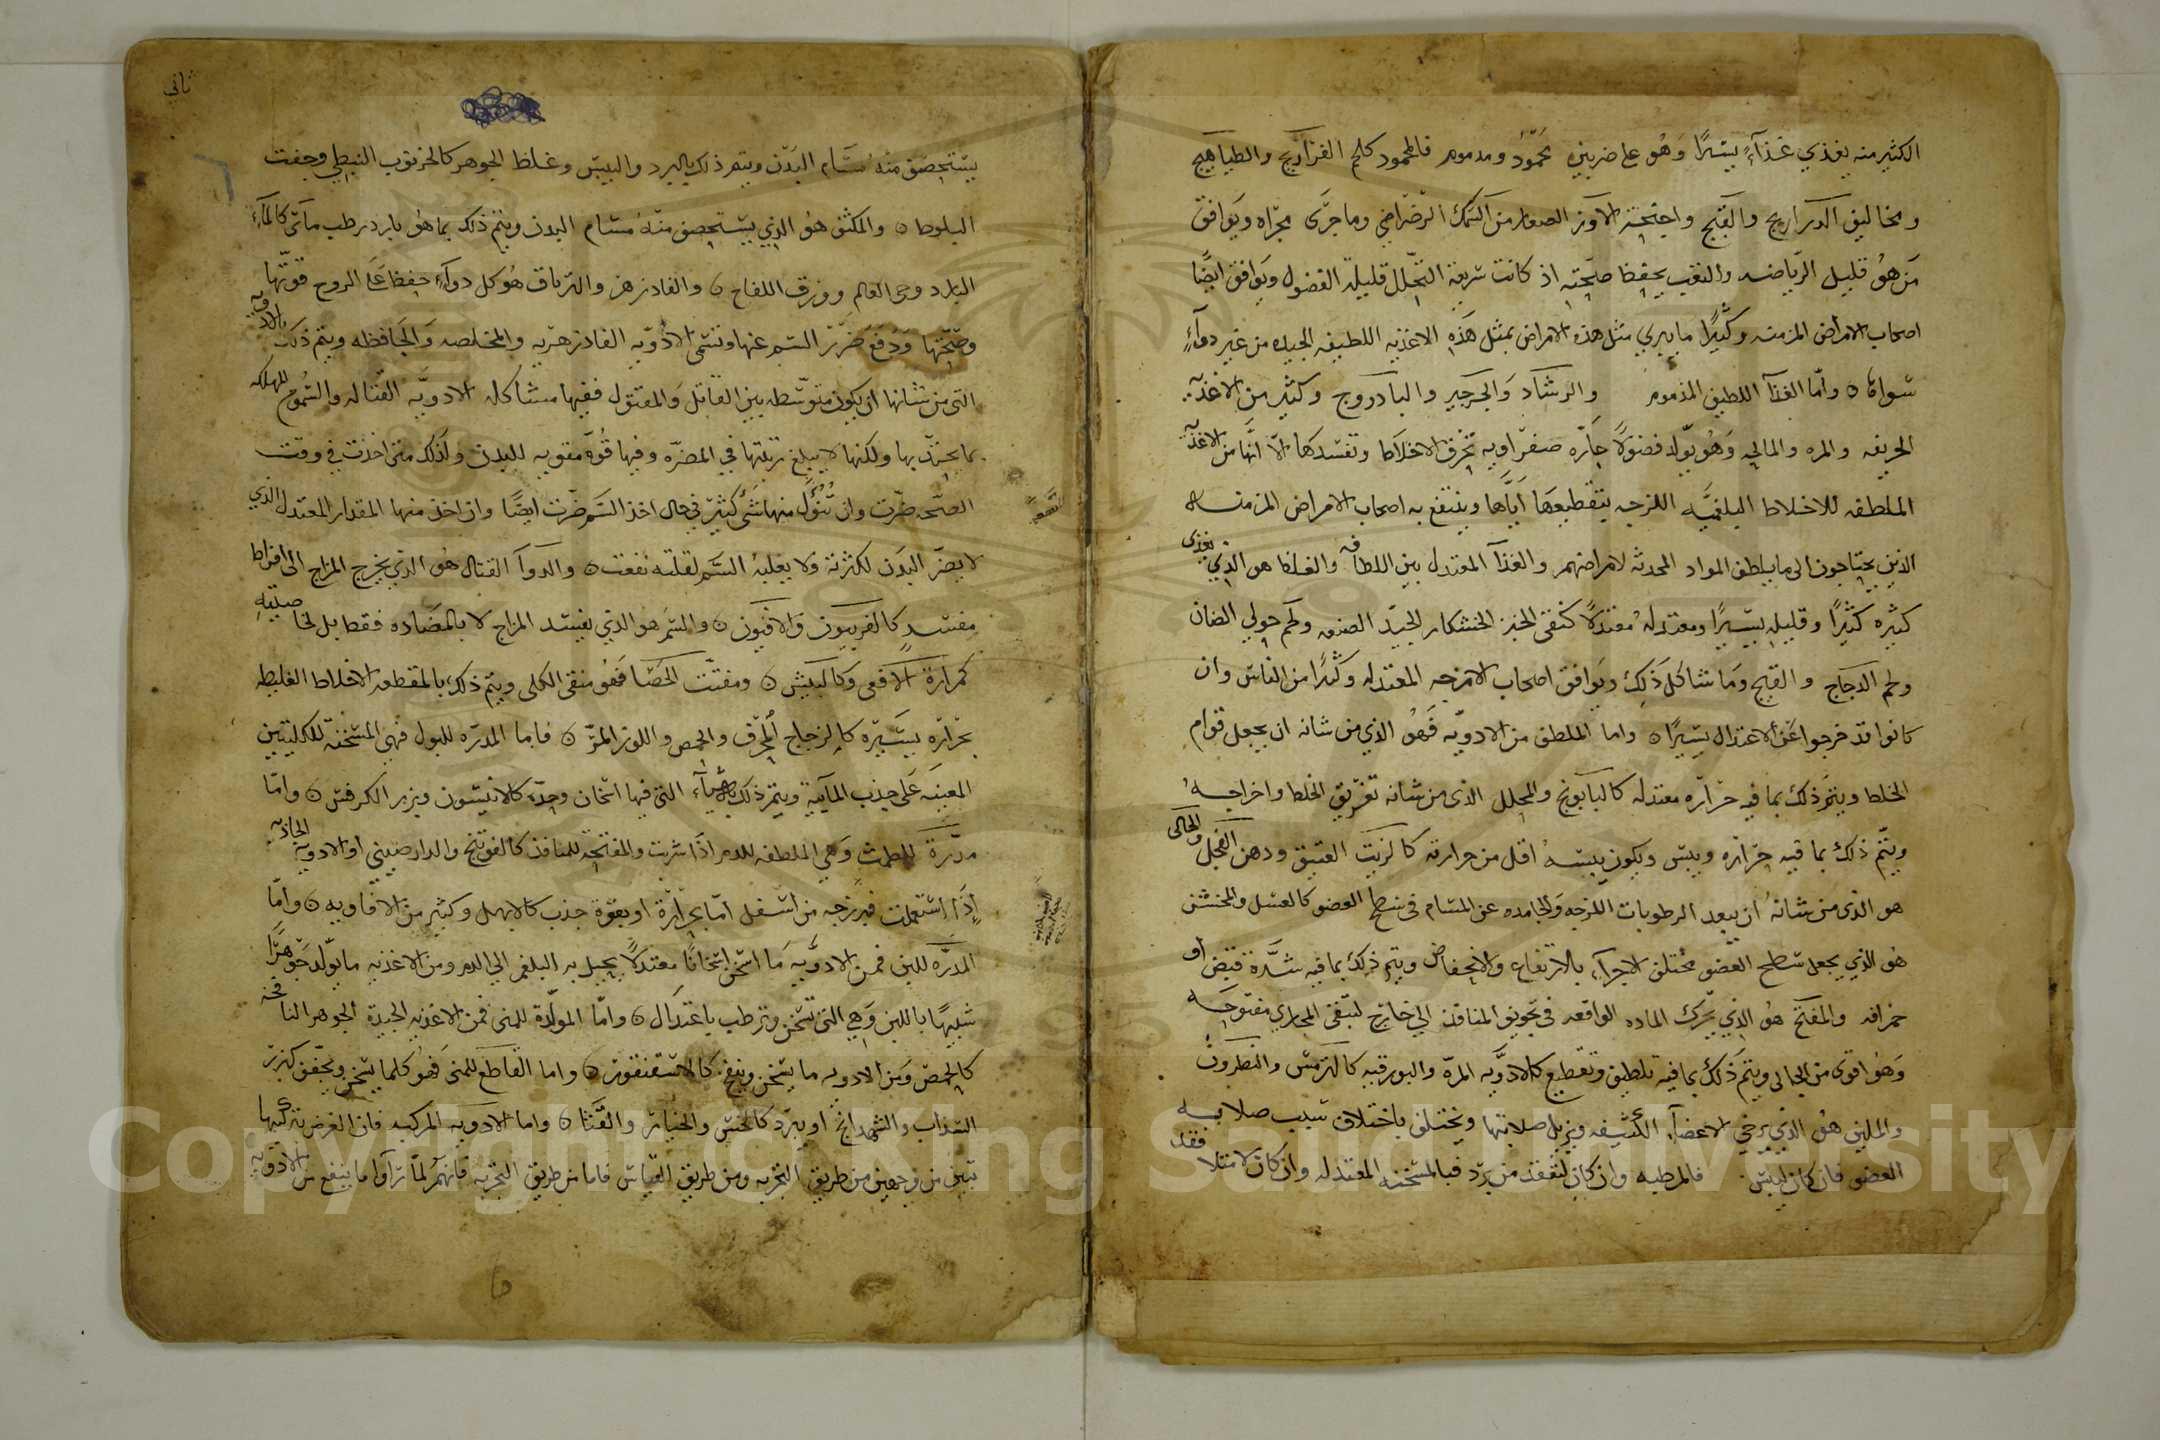 الكثير منه يغذي غذآءً يسيرًا وهُو على ضربين محمُود ومذموم فالمحمود كلحم الفراريج والطياهيج
ومخاليف الدراريج والقبج واجنحة الاوز الصغار من السمك الرضراضي وما جرى مجراه ويوافق
من هوُ قليل الرياضه والتعب بحفظ صحته اذ كانت سريعة التحلل قليلة الفضول ويوافق ايضًا
اصحاب الامراض المزمنه وكثيرًا ما يبري مثل هذه الامراض بمثل هذه الاغذيه اللطيفه الجيده من غير دوآءٍ
سواها ٥ وامّا الغذآ اللطيف المذموم والرشاد والجرجير والبادروج وكثير من الاغذيه
الحريفه والمره والمالحه وهُو يولد فضولاً حاره صفراويه تحرق الاخلاط وتفسدها الا انها من الاغذيه
الملطفه للاخلاط البلغميّه اللزجه بتقطيعها اياها وينتفع به اصحاب الامراض المزمنه
الذين يحتاجون الى ما يلطف المواد المحدثه لامراضهم والغذآ المعتدل بين اللطافه والغلظ هو الذي يغذى
كثيره كثيرًا وقليله يسيرًا ومعتدله معتدلاً كنقى الخبز الخشكار الجيد الصنعه ولحم حولي الضان
ولحم الدجاج والقبج وما شاكل ذلك ويوافق اصحاب الامزجه المعتدله وكثيرًا من الناس وان
كانوا قد خرجوا عن الاعتدال يسيرًا ٥ واما الملطف من الادويه فهوُ الذي من شانه ان يجعل قوام
الخلط ويتم ذلك بما فيه حراره معتدله كالبابونج والمحلل الذى من شانه تفريق الخلط واخراجه
ويتم ذلك بما فيه حراره ويبس ويكون يبسه اقل من حرارته كالزيت العتيق ودهن الفجل والجالى
هو الذى من شانه ان يبعد الرطوبات اللزجه والجامده عن المسام في سطح العضو كالعسل والمخشن
هو الذي يجعل سطح العضو مختلف الاجزآء بالارتفاع والانخفاض ويتم ذلك بما فيه شدة قبض او
حرافه والمفتح هوُ الذي يحرك الماده الواقعه في تجويف المنافذ الي خارج لتبقى المجاري مفتوحه
وهو اقوى من الجالي ويتم ذلك بما فيه تلطيف وتقطيع كالادويه المره والبورقيه كالترمس والنطرون
والملين هوُ الذي يرخي الاعضآء الكثيفه ويزيل صلابتها ويختلف باختلاف سبب صلابه
العضو فان كان ليبس فالمرطبه وان كان لتعقد من برد فبالمسخنه المعتدله وان كان لامتلا فقد
ثاني
يستحصف منه مسام البدن ويتم ذلك بالبرد واليبس وغلظ الجوهر كالخرنوب النبطي وجفت
البلوط ٥ والمكثف هوُ الذي يستحصف منه مسام البدن ويتم ذلك بما هو بارد رطب مآئى كالمآء
البارد وحى العالم وورق اللفاح ٥ والفادزهر والترياق هُو كل دوآء حفظ على الروح قوتها
وصحتها ودفع ضرر السم عنها وتسمى الادويه الفادزهريه والمخلصه والحافظه ويتم ذلك بالادويه
التى من شانها ان يكون متوسطه بين القاتل والمقتول ففيها مشاكله الادويه القتاله والسموم المهلكه
بما يجذب بها ولكنها لا يبلغ رتبتها في المضره وفيها قُوه مقويه للبدن ولذلك متى اخذت في وقت
الصحه ضرت وان تنُوول منها شئ كثير في حال اخذ السم ضرت ايضًا وان اخذ منها المقدار المعتدل الذي
لا يضر البدن لكثرته ولا يغلبه السم لقلته نفعت ٥ والدوآ القتال هُو الذي يخرج المزاج الى افراط
مفسد كالفربيون والافيون ٥ والسم هو الذي يفسد المزاج لا بالمضاده فقط بل بخاصيته
كمرارة الافعى وكالبيش ٥ ومفتت الحصا فهُو منقى الكلى ويتم ذلك بالمقطعه الاخلاط الغليظه
بحراره يسيره كالزجاج المحرق والحمص واللوز المر ٥ فاما المدره للبول فهى المسخنة للكليتين
المعينه على جذب المآئية ويتم ذلك بالاشيآء التى فيها اسخان وحده كالانيسون وبزر الكرفس ٥ وامّا
مدرة للطمث وهي الملطفه للدم اذا شربت والمفتحه للمنافذ كالفوتنج والدارصيني او الادويه الجاذبه
إذا استعملت فرزجه من اسفل اما بحرارة او بقوة جذب كالابهل وكثير من الافاويه ٥ وامّا
المدره للبن فمن الادويه ما اسخن اسخانًا معتدلاً يحيل به البلغم الي الدم ومن الاغذيه ما يولد جوهرًا
شبيهًا باللبن وهي التى تسخن وترطب باعتدال ٥ وامّا المولدة للمنى فمن الاغذيه الجيدة الجوهر النافخه
كالحمص ومن الادويه ما يسخن وينفخ كالاسقنقور ٥ واما القاطع للمنى فهو كلما يسخن ويجفف كبزر
السذاب والشهدانج او يبرد كالخس والخيار والقثا ٥ واما الادويه المركبه فان الغرض تركيبها
تبين من وجهين من طريق التجربه ومن طريق القياس فاما من طريق التجربه فانهم لما رآوا ما ينفع من الادويه
6
Copyright © King Saud University